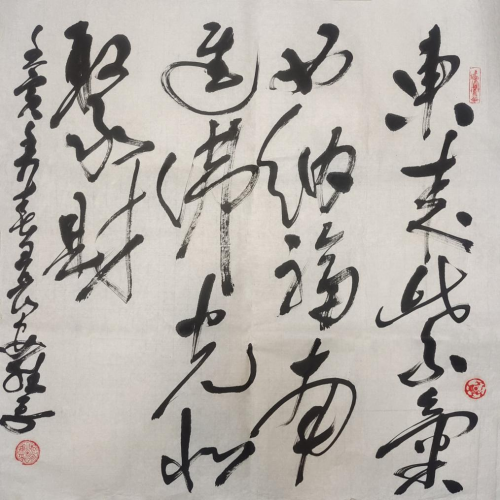 東来紫氣
西納福南
進佛光北
聚財
壬寅